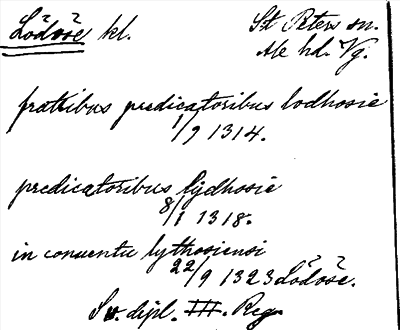 Lödöse kl. St Peters sn.
Ale hd. Vg.
fratribus predicatoribus lodhosie
1/9 1314.
predicatoribus lijdhosie
8/1 1318.
in conuentu lythosiensi
22/9 1323 Lödöse.
Sv. dipl. III. Reg.